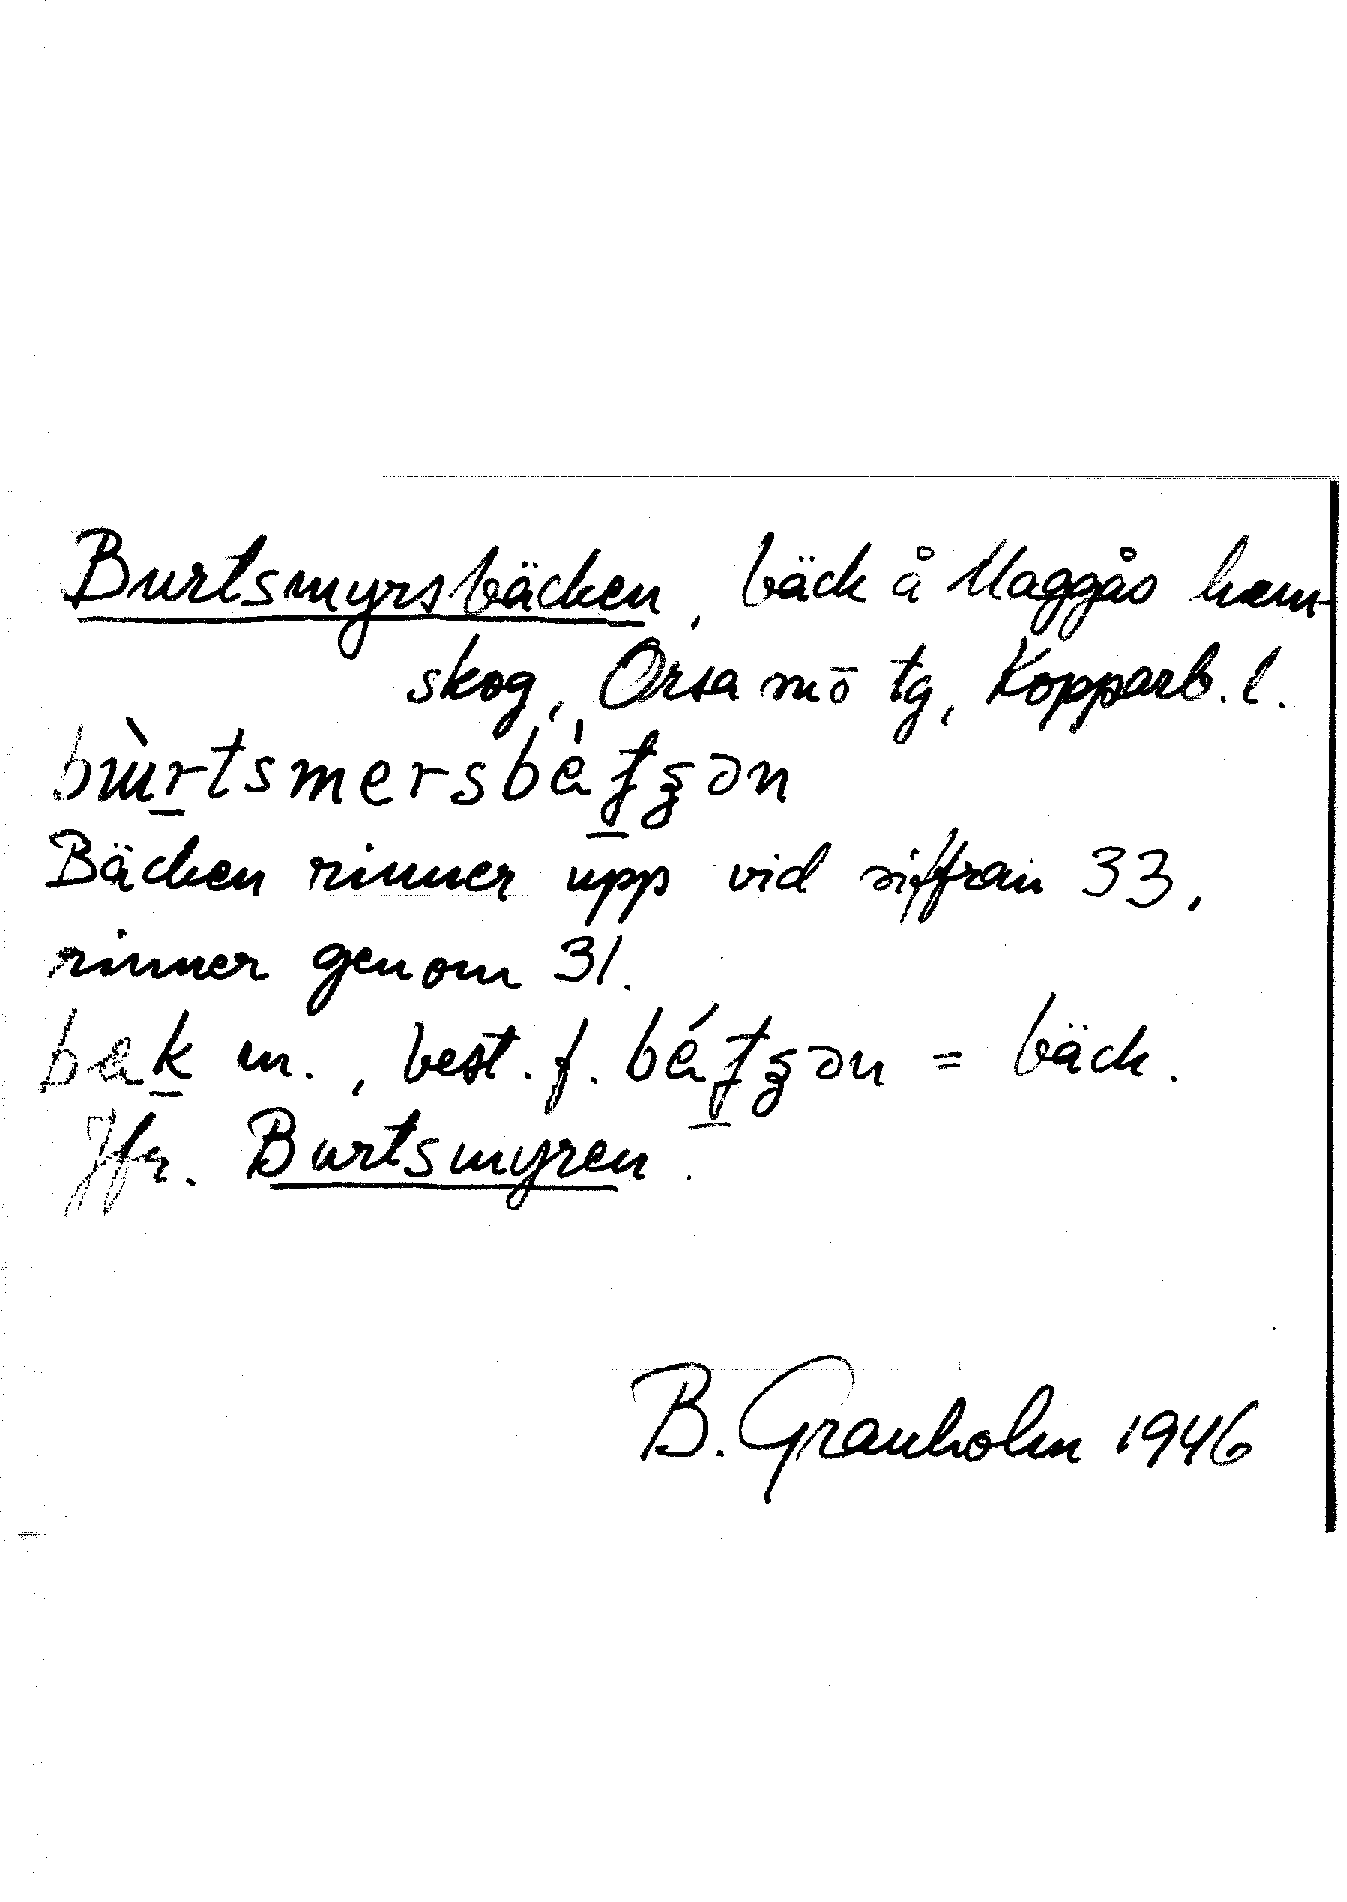 Burtsmyrsbäcken, bäck å Maggås hem-
skog, Orsa mō tg, Kopparb. l.
Bäcken rinner upp vid siffran 33,
rinner genom 31.
bak m., best. f. = bäck.
Jfr. Burtsmyren.
B. Granholm 1946